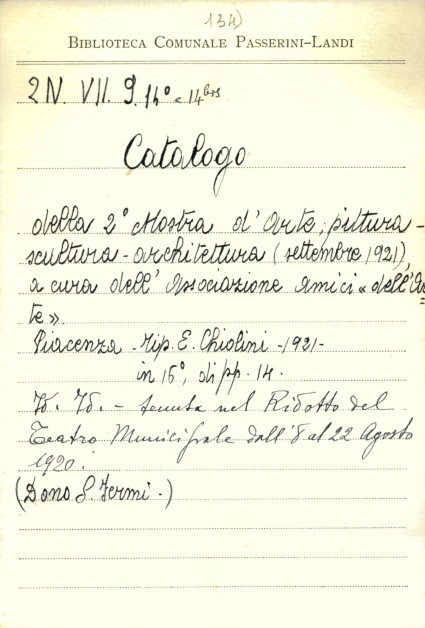 134)
BIBLIOTECA COMUNALE PASSERINI-LANDI
2N. VII. 9. 14° e 14 bis
Catalogo
della 2° Mostra d'Arte, pittura-
scultura-architettura (settembre 1921)
a cura dell'Associazione Amici «dell'Ar
te».
Piacenza - Tip. E. Chiolini - 1921-
in 16°, di pp. 14.
Id. Id. - tenuta nel Ridotto del
Teatro Municipale dall'8 al 22 Agosto
1920.
(Dono S. Fermi.)